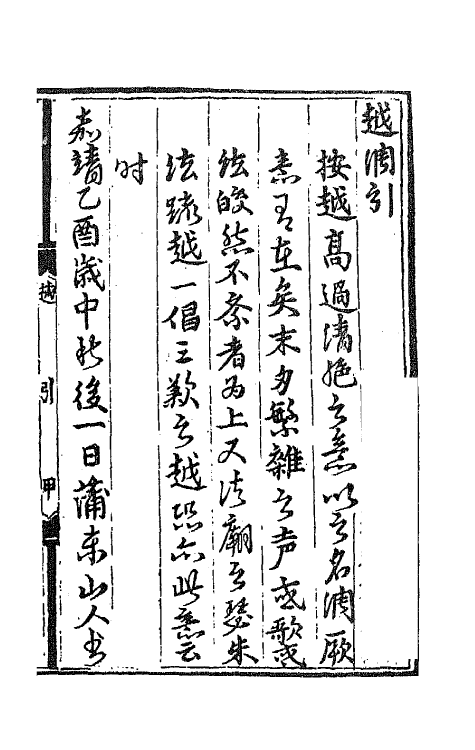 越調引
按越高過清絶之意以之名調厥
意有在矣末多繁雜之声或歌或
絃皎然不紊者为上又清廟之瑟朱
絃疏越一倡三歎之越恐亦此意云
时
嘉靖乙酉歲中秋後一日蒲東山人书
越 引 甲